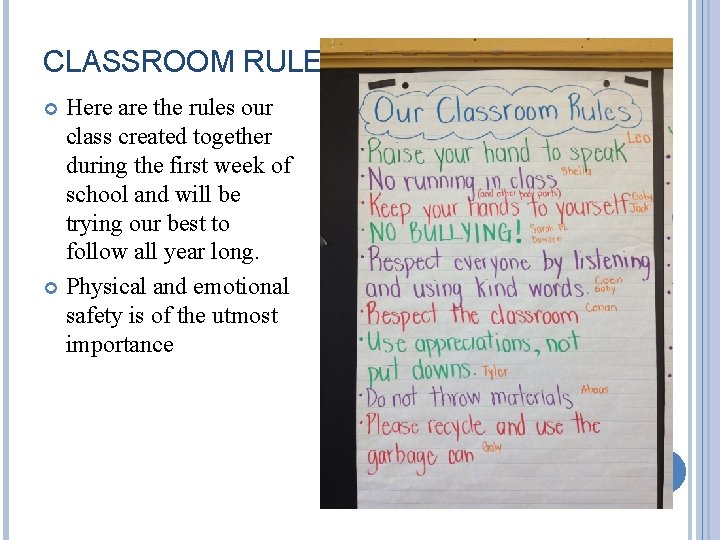 CLASSROOM RULE
Here are the rules our
class created together
during the first week of
school and will be
trying our best to
follow all year long.
Physical and emotional
safety is of the utmost
importance
Our Classroom Rules
• Raise your hand to speak Leo
• No running in class Sheila
(and other body parts)
• Keep your hands to yourself Gaby Jack
• NO BULLYING! Sarah M. Davison
• Respect everyone by listening
and using kind words. Coen Gaby
• Respect the classroom Conan
• Use appreciations, not
put downs. Tyler
• Do not throw materials Abbas
• Please recycle and use the
garbage can Gaby